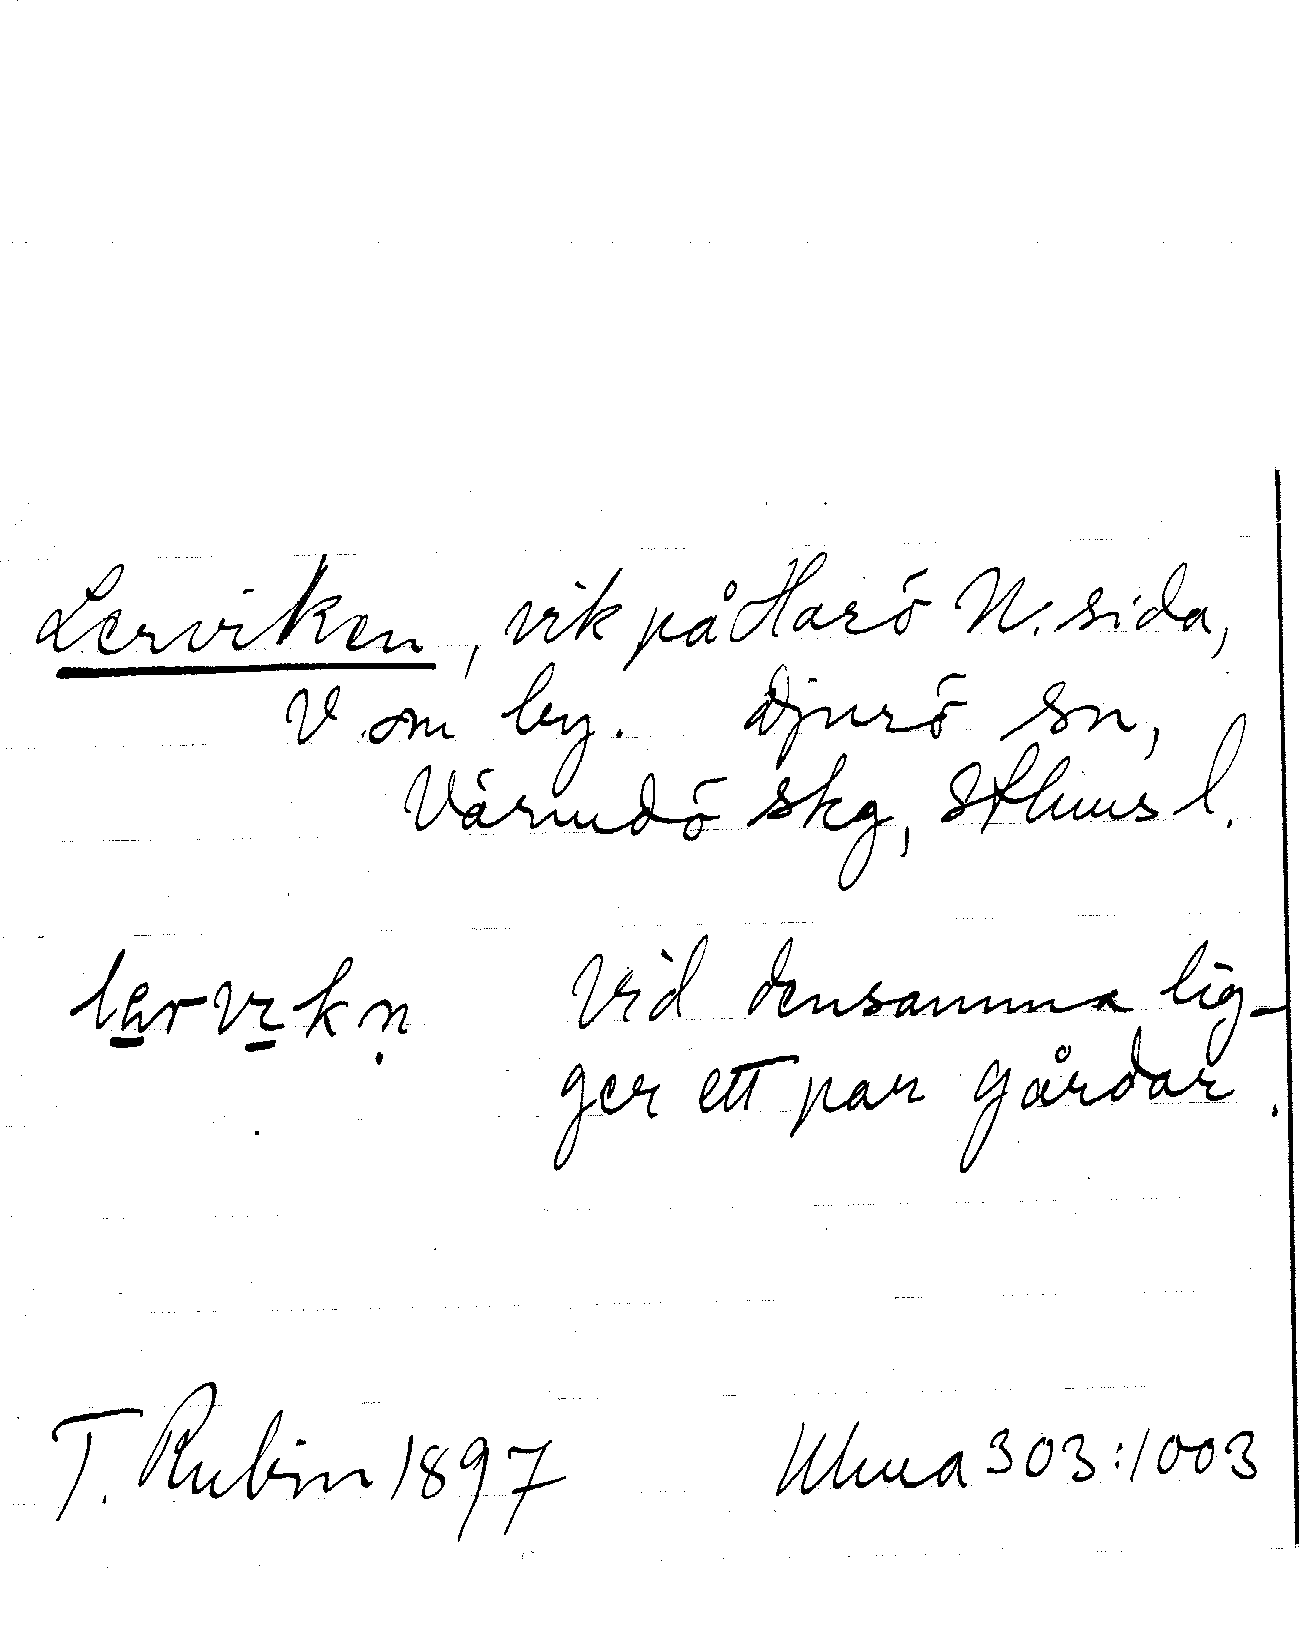 Lerviken, vik på Harö N. sida,
V om by. Djurö sn,
Värmdö skg, Sthms l.
lervikn Vid densamma lig-
ger ett par gårdar.
T. Rubin 1897 Ulma 303:1003